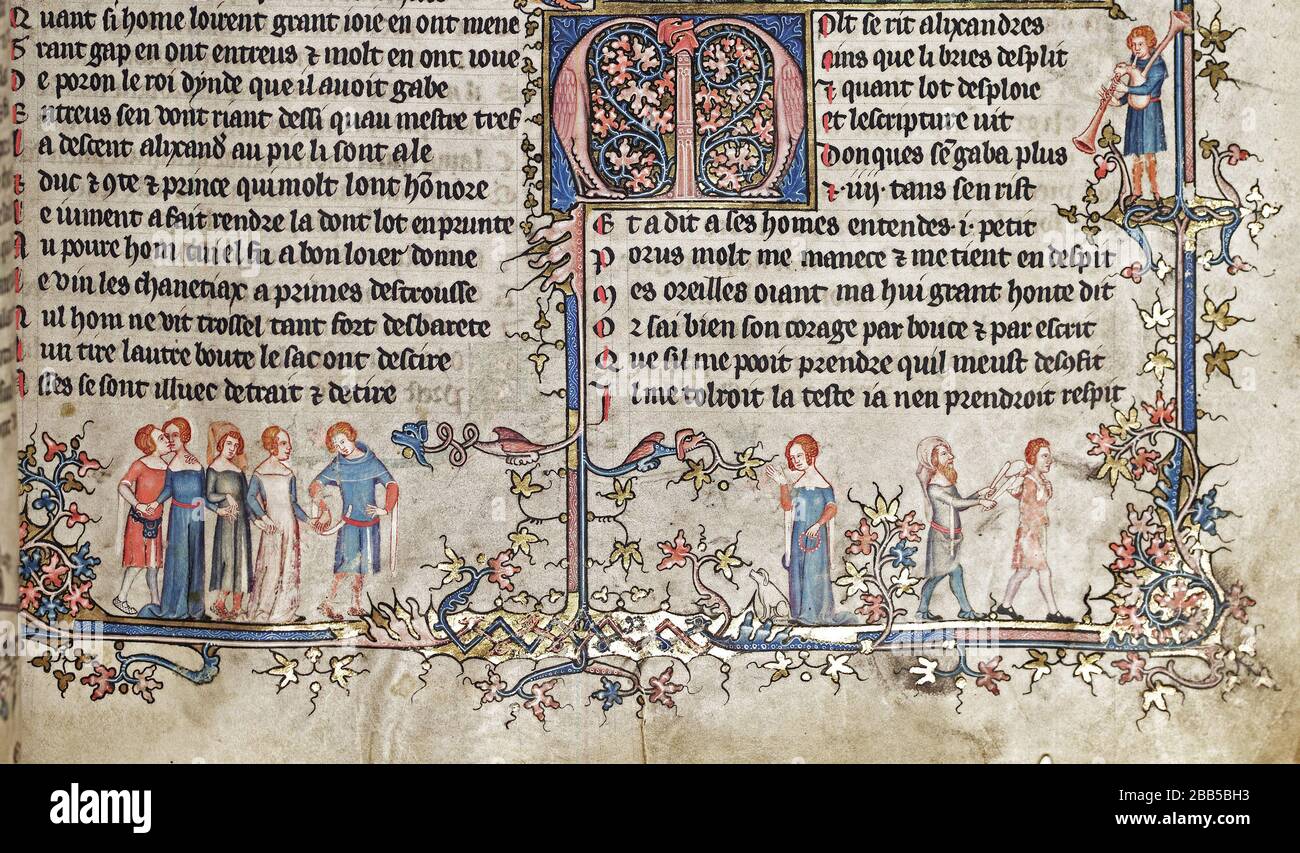 Quant si home loirent grant ioie en ont mene
Grant gap en ont entreus ⁊ molt en ont ioue
De poron le roi dynde que il auoit gabe
Entreus sen vont riant dessi quau mestre tref
La descent alixandˀ au pie li sont ale
duc ⁊ 9te ⁊ prince qui molt lont hōnore
Le iument a fait rendre la dont lot enprunte
Au poure hom cui el fu a bon loier donne
Le vin les chanetiax a primes destrousse
Nul hom ne vit trossel tant fort desbarete
Lun tire lautre boute le sac ont descire
Asses se sont illuec detrait ⁊ detire
Molt se rit alixandres
ains que li bries desplit
⁊ quant lot desploie
et lescripture vit
Donques sē gaba plus
⁊ .iiij. tans sen rist
Et a dit a ses homes entendes .i. petit
Porus molt me manece ⁊ me tient en despit
Mes oreilles oiant ma hui grant honte dit
Or sai bien son corage par bouce ⁊ par escrit
Que sil me pooit prendre quil meust desofit
Il me tolroit la teste ia nen prendroit respit
alamy
Image ID: 2BB5BH3
www.alamy.com